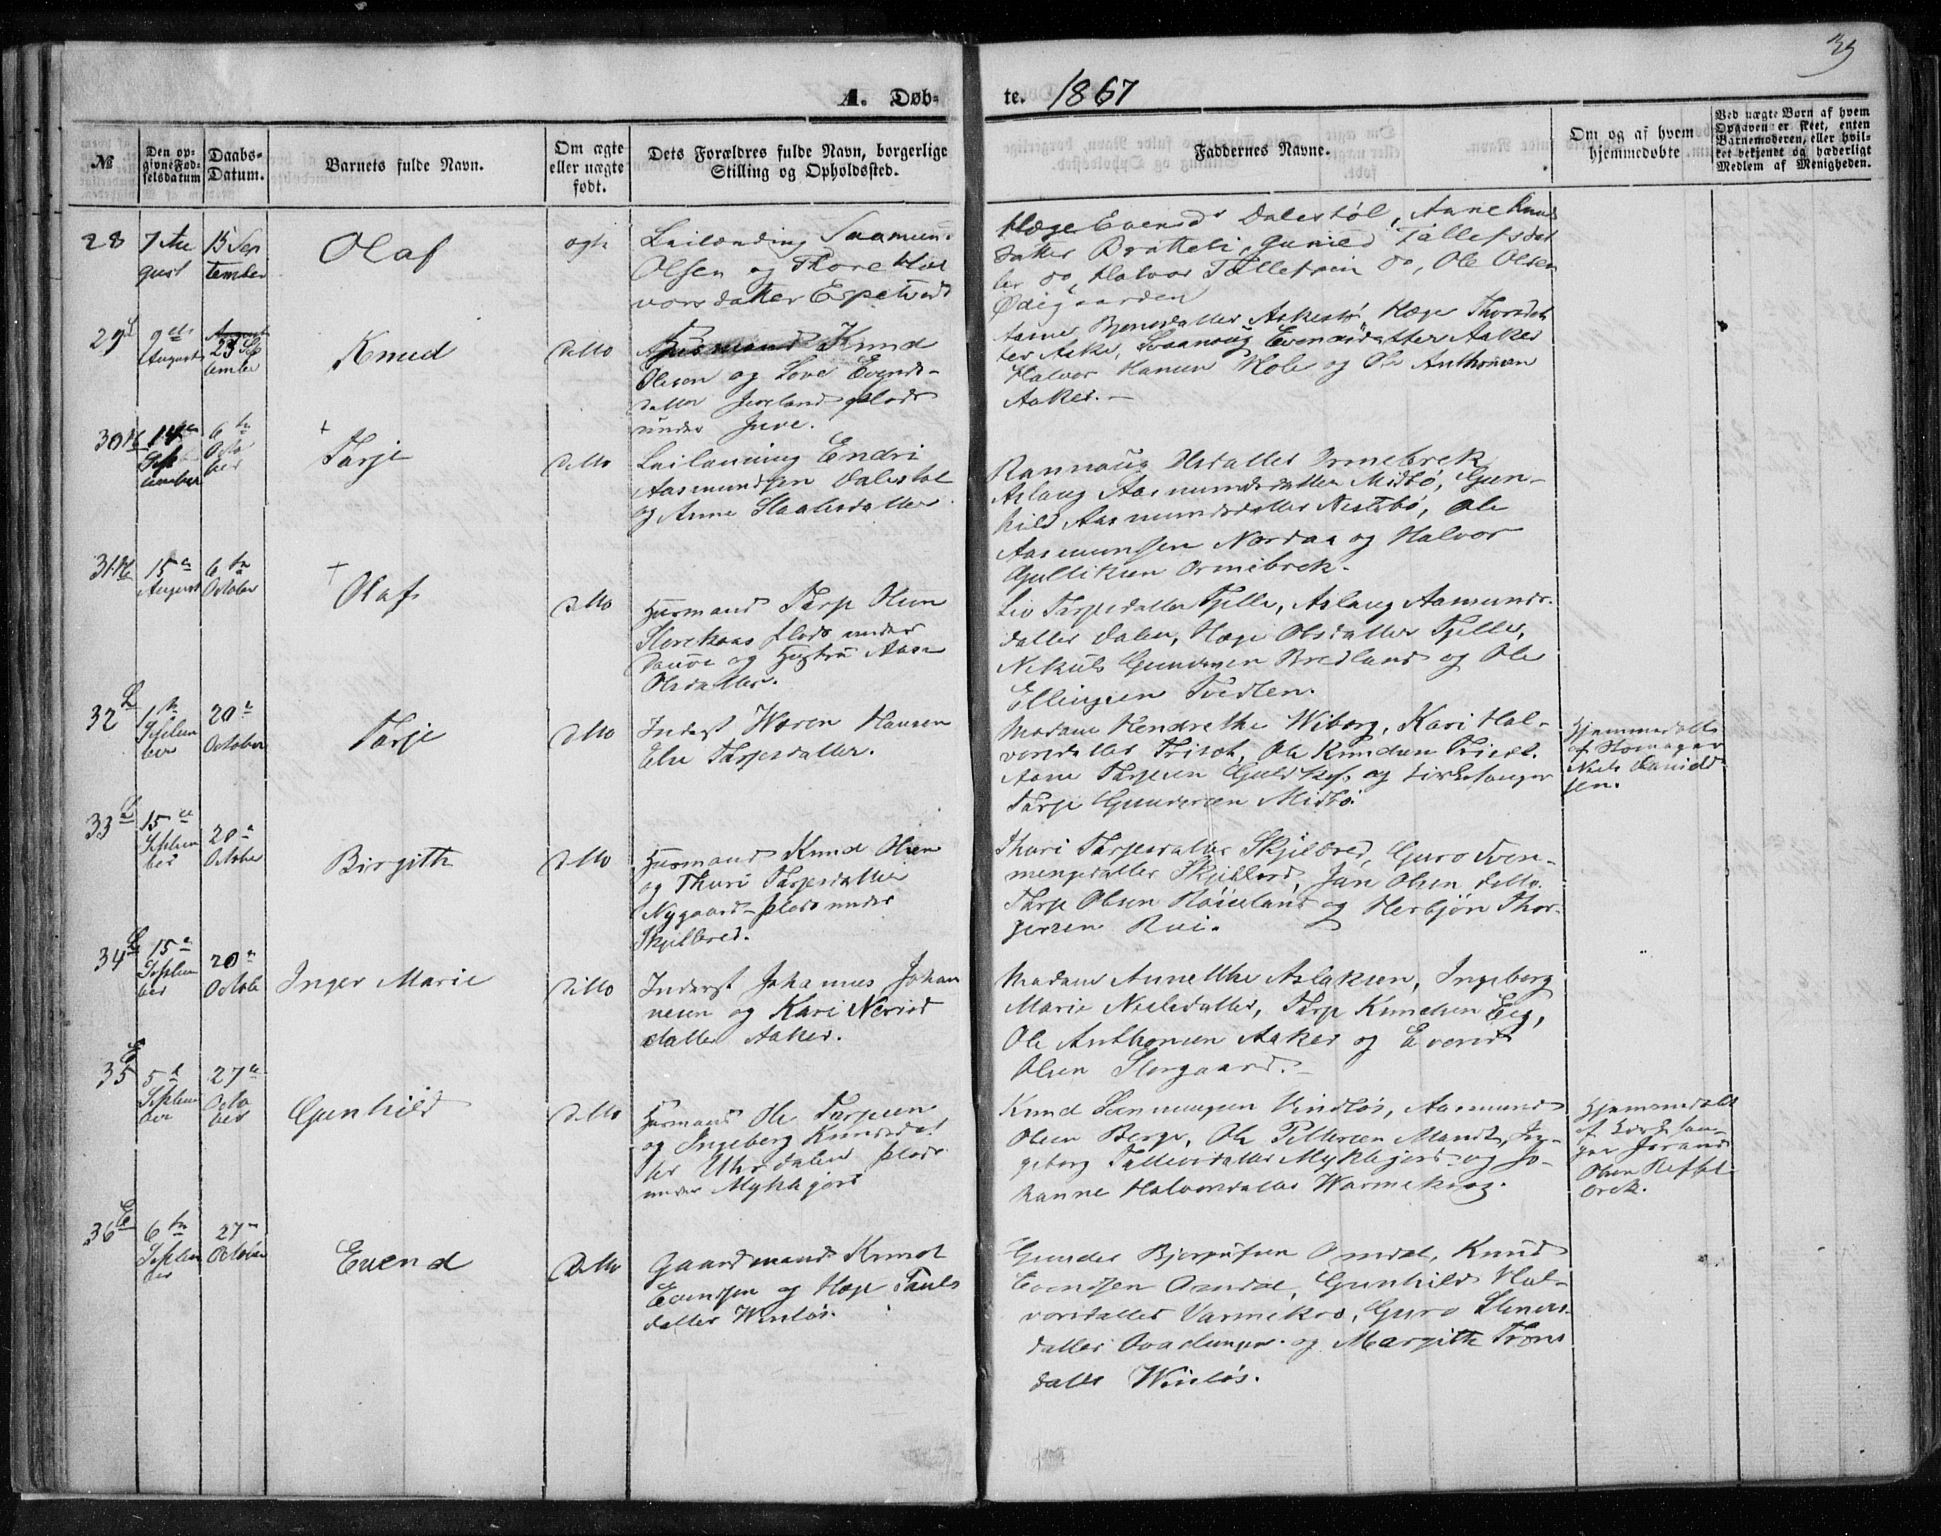 39
A. Døb-
te. 1867
№
Den op-
givne Fød-
selsdatum
Daabs-
Datum.
Barnets fulde Navn.
Om ægte
eller uægte
født.
Dets Forældres fulde Navn, borgerlige
Stilling og Opholdssted.
Faddernes Navne.
Om og af hvem
hjemmedøbte
Ved uægte Børn af hvem
Opgaven er skeet, enten
Barnemoderen, eller hvil-
ket bekjendt og hæderligt
Medlem af Menigheden.
28
7 Au
gust
15 Sep
tember
Olaf
ægte
Leilænding Saamun
Olsen og Thore Hal
vorsdatter Espetveid
Hæge Evensd Dalestøl, Aane Knuds
datter Bratteli, Gunild Tallefsdat
ter do, Halvor Tallefsen do, Ole Olsen
Ødegaarden
29
9de
August
23 Sep
tember
Knud
Ditto
Huusmand Knud
Olsen og Love Evends-
datter Juveland plads
under Juve.
Anne Bjønsdatter Askestø Hæge Thorsdat
ter Aake, Evendsdatter Aaker
Halvor Hansen Hole og Ole Anthonsen
Aaker.-
30
14de
Sept
ember
6te
Octo
ber
+
Tarje
Ditto
Leilænding Endri
Aasmundsen Dalestøl
og Anne Staalesdatter
Rannoug Olsdatter Ormebrek
Aslaug Aasmundsdatter Midbø, Gun-
hild Aasmundsdatter Nestebø, Ole
Aasmundsen Nordaa og Halvor
Gulliksen Ormebrek.
31
15de
August
6te
October
+
Olaf
Ditto
Husmand Tarje Olsen
plads under
og Hustru Aase
Olsdatter.
Liv Tarjesdatter Tjelle, Aslaug Aasmunds-
datter Dalen, Hæge Olsdatter Tjelle,
Gundersen Bredland og Ole
Ellingsen Tveiten.
32
1te
Septem
ber
20de
October
Tarje
Ditto
Inderst Hansen
Else Tarjesdatter.
Madame Hendrethe Wiborg, Kari Hal-
vorsdatter Triset, Ole Knudsen Triset
Aane Tarjesen og Kirkesanger
Tarje Gundersen Midbø.
Hjemmedøbt
af
Niels David
sen.
33
15de
Septem
ber
20de
October
Birgith
Ditto
Husmand Knud Olsen
og Thuri Tarjesdatter
Nygaard plads under
Skjelbred.
Thuri Tarjesdatter Skjelbred, Guro Sven-
nungsdatter Skjelbred, Jan Olsen ditto.
Tarje Olsen Røiseland og Herbjøn Thor-
gersen Rui.
34
15de
Septem
ber
20de
Octobe
Inger Marie
Ditto
Inderst Johannes Johan
nesen og Kari Nerid
datter Aaker.
Madame Annethe Aslaksen, Ingeborg
Marie Nielsdatter, Tarje Knudsen Eeg,
Ole Anthonsen Aaker og Evend
Olsen Storgaard.-
35
5te
Septem
ber
27de
Octo
ber
Gunhild
Ditto
Husmand Ole Tarjesen
og Ingeborg Knudsdat
ter Uhrdalen plads
under Myklejord
Knud Svennungsen Vindløs, Aasmund
Olsen Berge, Ole Pettersen Mandt, In-
geborg Tallevsdatter Myklejord og Jo-
hanne Halvorsdatter Warmekrog.
Hjemmedøbt
af Kirkesan-
ger Jørand
Olsen
36
6te
Septem
ber
27
October
Evend
Ditto
Gaardmand Knud
Evendsen og Hæge Pauls
datter Winløs.
Gunder Bjorgufsen Omdal, Knud
Evendsen Omdal, Gunhild Hal-
vorsdatter Varmekro, Guro Steners-
datter og Margith Trons
datter Winløs.